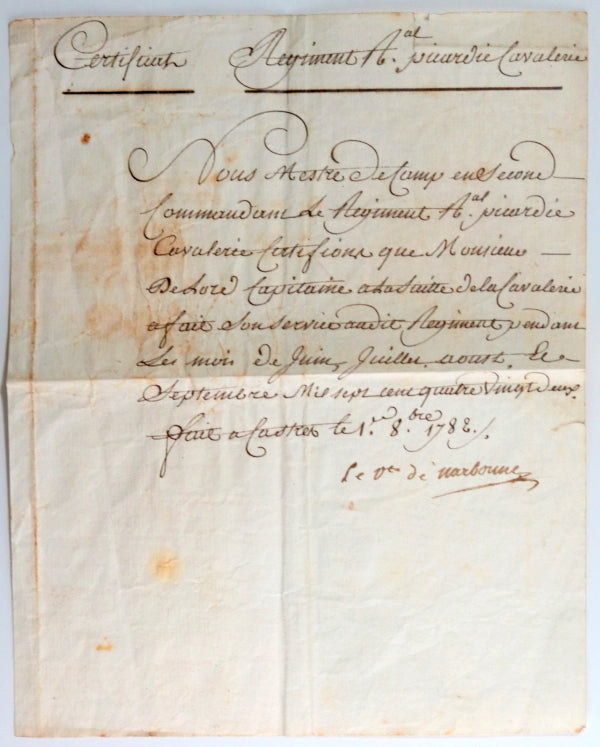 Certificat Regiment R.al picardie Cavalerie
Nous Mestre De Camp en Second
Commandant Le Regiment R.al picardie
Cavalerie Certifions que Monsieur
De Lord Capitaine a La Suitte de la Cavalerie
a fait Son Service audit Regiment pendant
Les mois de Juin, Juillet, aoust, Et
Septembre Mil sept cent quatre vingt deux.
fait a Castres le 1.er 8.bre 1782./.
Le v.te de narbonne